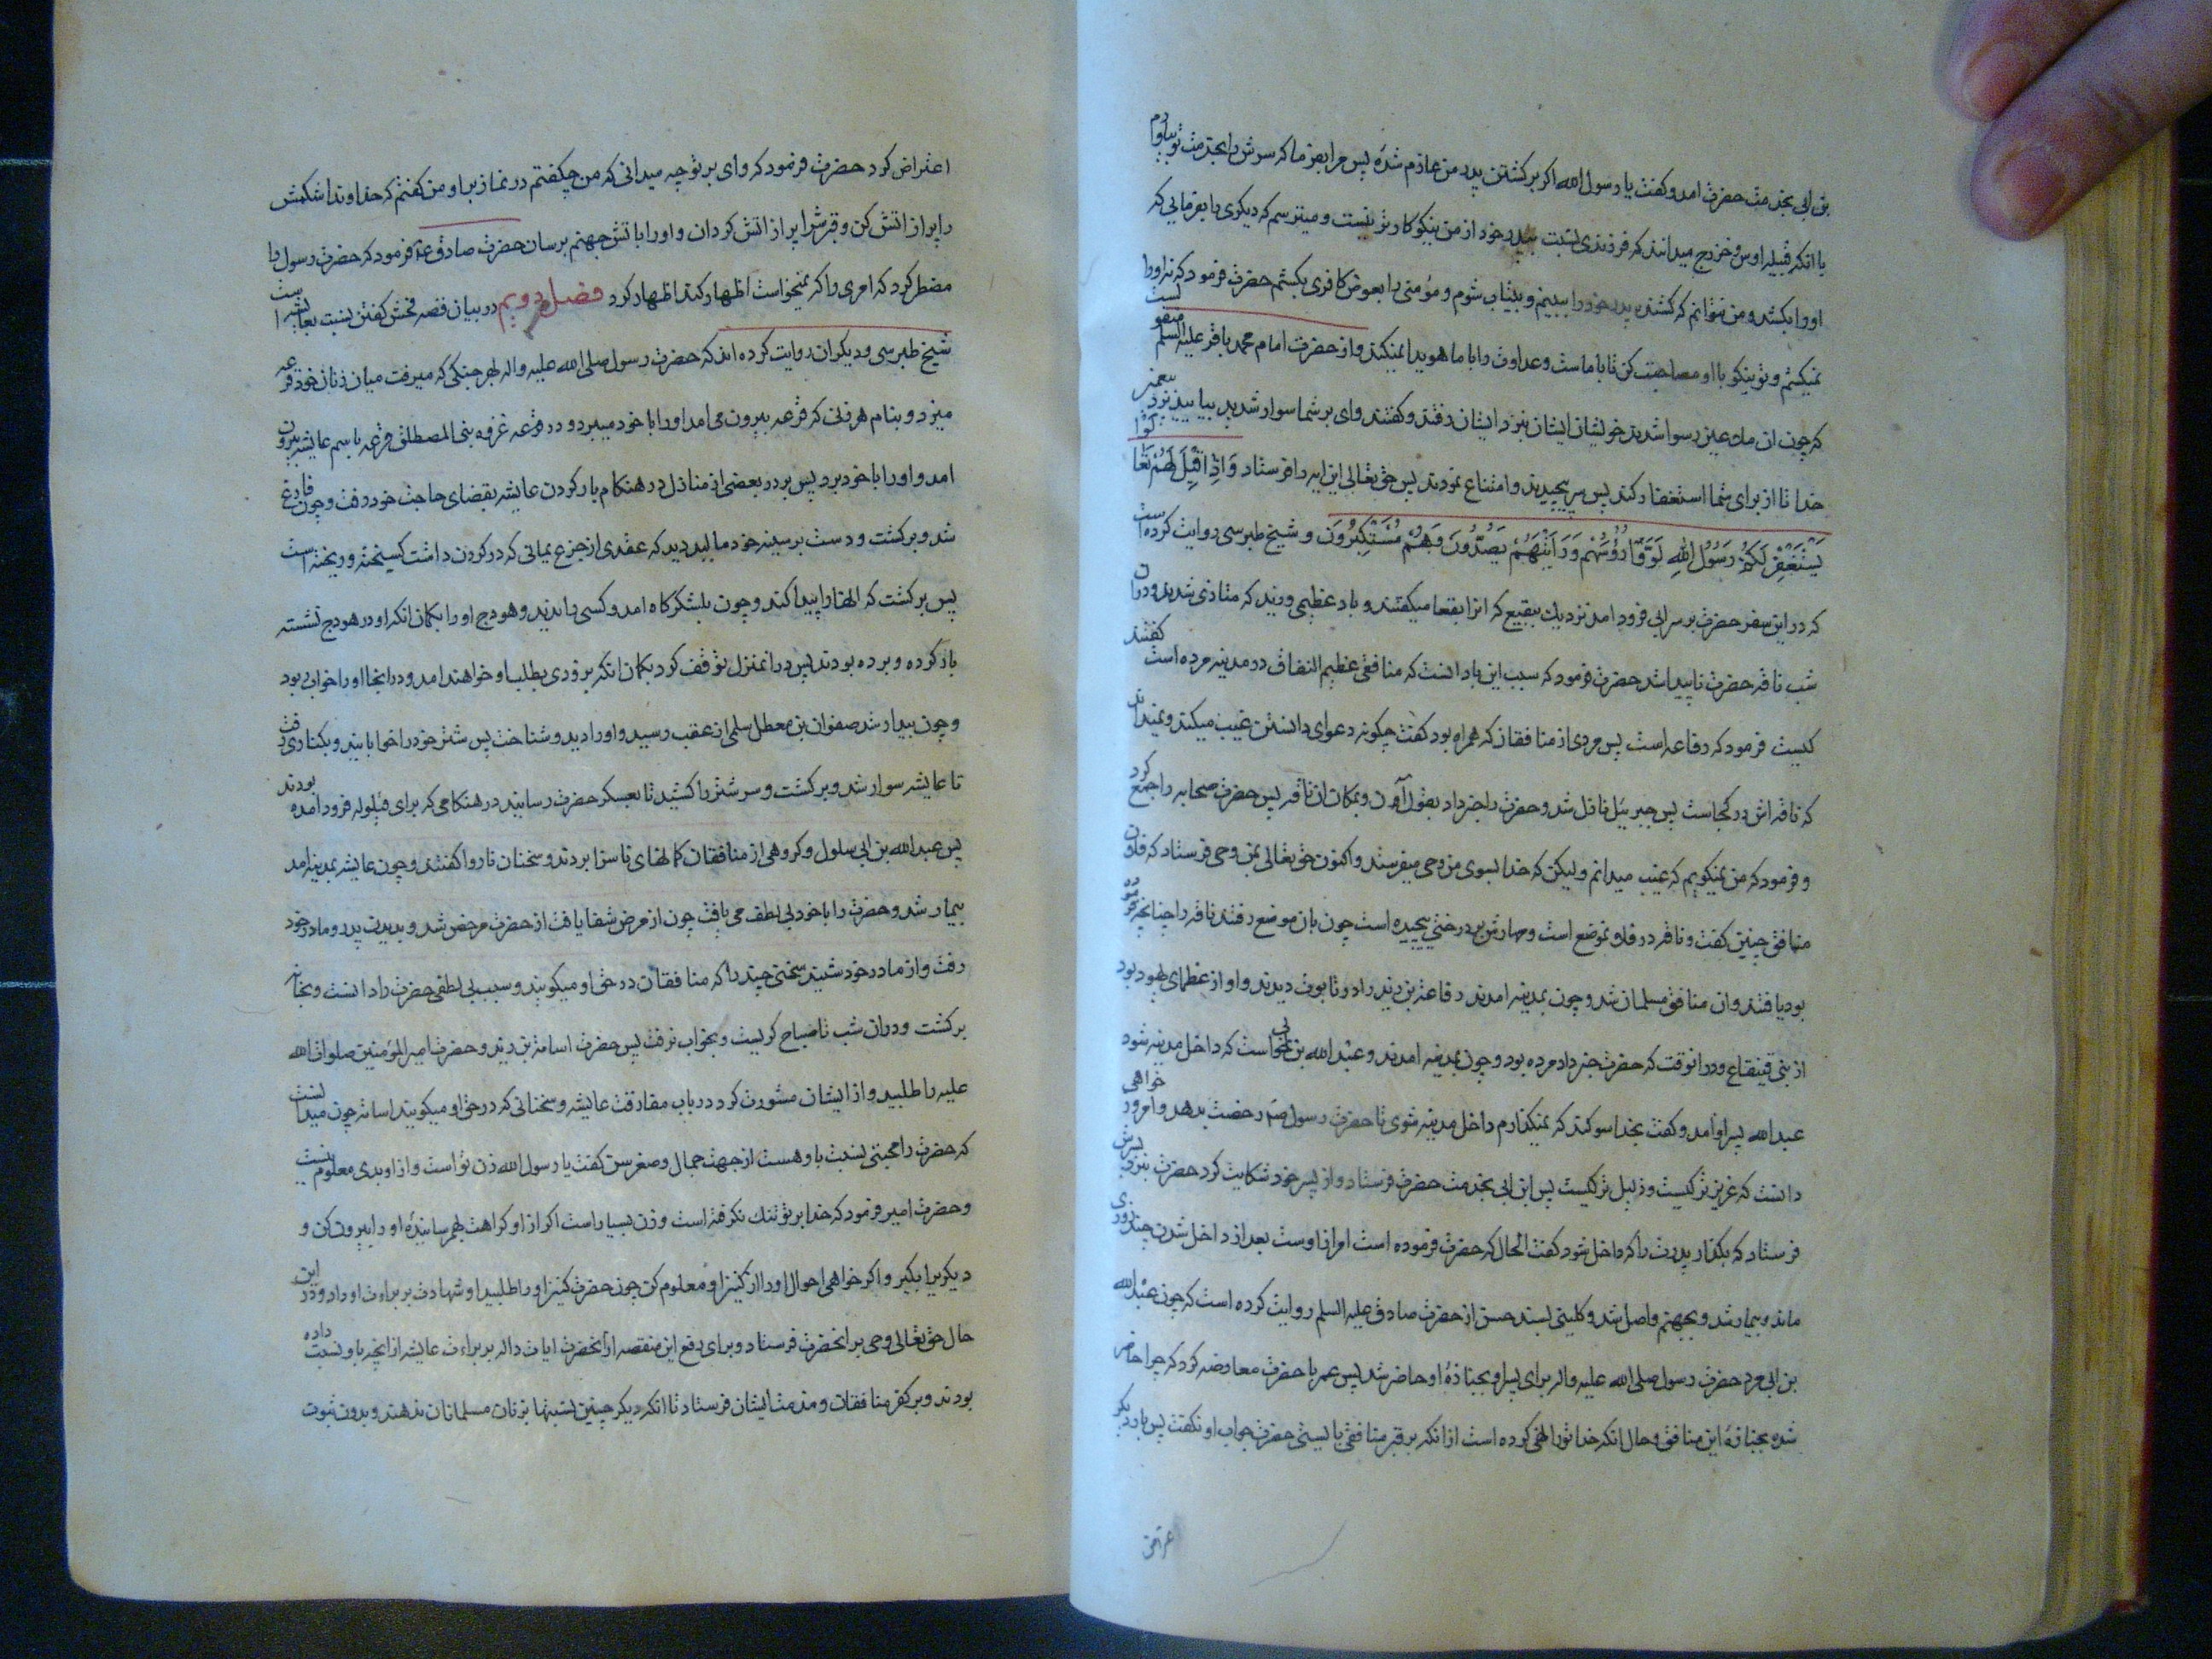 بن ابی بخدمت حضرت امد و کفت یا رسول الله اکر بر کشتن پدر من عازم شدهٔ پس مرا بفرما که سرش را بخدمت تو بیاورم
با انکه قبیله اوس و خزرج میدانند که فرزندی نسبت بپدر خود از من نیکوکارتر نیست و میترسم که دیکری را بفرمایی که
او را بکشد و من نتوانم که کشنده پدر خود را ببینم و بیتاب شوم و مؤمنی را بعوض کافری بکشم حضرت فرمود که نه او را
نمیکشم و تو نیکو با او مصاحبت کن تا با ماست و عداوت را با ما هویدا نمیکند و از حضرت امام محمد باقر علیه السلم منقولست
که چون ان ملاعین رسوا شدند خویشان ایشان بنزد ایشان رفتند و کفتند وای بر شما رسوا شدید بیایید نزد پیغمبر
خدا تا از برای شما استغفار کند پس سر پیچیدند و امتناع نمودند پس حق تعالی این ایه را فرستاد وَاِذَا قِیلَ لَهُمْ تَعَالَوْا
یَسْتَغْفِرْ لَکُمْ رَسُولُ اللهِ لَوَّوْا رُؤُسَهُمْ وَرَاَیْتَهُمْ یَصُدُّونَ وَهُمْ مُسْتَکْبِرُونَ و شیخ طبرسی روایت کرده است
که در این سفر حضرت بر سر ابی فرود امد نزدیک ببقیع که انرا بقعا میکفتند و باد عظیمی وزید که متاذی شدند و در ان
شب ناقه حضرت ناپیدا شد حضرت فرمود که سبب این باد انست که منافقی عظیم النفاق در مدینه مرده است کفتند
کیست فرمود که رفاعه است پس مردی از منافقان که همراه بود کفت چکونه دعوای دانستن غیب میکند و نمیداند
که ناقه اش در کجاست پس جبرییل نازل شد و حضرت را خبر داد بقول آن و بمکان ان ناقه پس حضرت صحابه را جمع کرد
و فرمود که من نمیکویم که غیب میدانم ولیکن که خدا بسوی من وحی میفرستد و اکنون حق تعالی بمن وحی فرستاد که فلان
منافق چنین کفت و ناقه در فلان موضع است و مهارش بر درختی پیچیده است چون بان موضع رفتند ناقه را چنانچه فرموده
بود یافتند و ان منافق مسلمان شد و چون بمدینه امدند رفاعه بن زید را در تابوت دیدند و او از عظمای یهود بود
از بنی قینقاع و در انوقت که حضرت خبر داد مرده بود و چون بمدینه امدند و عبد الله بن ابی خواست که داخل مدینه شود
عبد الله پسر او امد و کفت بخدا سوکند که نمیکذارم داخل مدینه شوی تا حضرت رسول ص رخصت بدهد و امروز خواهی
دانست که عزیزتر کیست و ذلیل تر کیست پس ابن ابی بخدمت حضرت فرستاد و از پسر خود شکایت کرد حضرت بنزد پسرش
فرستاد که بکذار پدرت را که داخل شود کفت الحال که حضرت فرموده است امر از اوست بعد از داخل شدن چند روزی
ماند و بیمار شد و بجهنم واصل شد و کلینی بسند حسن از حضرت صادق علیه السلم روایت کرده است که چون عبد الله
بن ابی مرد حضرت رسول صلی الله علیه واله برای پسر او بجنازهٔ او حاضر شد پس عمر با حضرت معارضه کرد که چرا حاضر
شدی بجنازهٔ این منافق و حال انکه خدا تو را نهی کرده است از انکه بر قبر منافقی بایستی حضرت جواب او نکفت پس بار دیکر
اعتراض کرد حضرت فرمود که وای بر تو چه میدانی که من چکفتم در نماز بر او من کفتم که خداوندا شکمش
را پر از اتش کن و قبرش را پر از اتش کردان و او را با تش جهنم برسان حضرت صادق ع فرمود که حضرت رسول را
مضطر کرد که امری را که نمیخواست اظهار کند اظهار کرد فصل دویم در بیان قصه فحش کفتن نسبت بعایشه است
شیخ طبرسی و دیکران روایت کرده اند که حضرت رسول صلی الله علیه واله بهر جنکی که میرفت میان زنان خود قرعه
میزد و بنام هر زنی که قرعه بیرون می امد او را با خود میبرد و در قرعه غزوه بنی المصطلق قرعه باسم عایشه بیرون
امد و او را با خود برد پس در بعضی از منازل در هنکام بار کردن عایشه بقضای حاجت خود رفت و چون فارغ
شد و برکشت و دست بر سینه خود مالید دید که عقدی از جزع یمانی که در کردن داشت کسیخته و ریخته است
پس برکشت که انها را پیدا کند و چون بلشکرکاه امد و کسی را ندید و هودج او را بکمان انکه او در هودج نشسته
بار کرده و برده بودند پس در انمنزل توقف کرد بکمان انکه بزودی بطلب او خواهند امد و در انجا او را خوابی بود
و چون بیدار شد صفوان بن معطل سلمی از عقب رسید و او را دید و شناخت پس شتر خود را خوابانید و بکناری رفت
تا عایشه سوار شد و برکشت و سر شتر را کشید تا بعسکر حضرت رسانید در هنکامی که برای قیلوله فرود امده بودند
پس عبد الله بن ابی سلول و کروهی از منافقان کمانهای ناسزا بردند و سخنان ناروا کفتند و چون عایشه بمدینه امد
بیمار شد و حضرت را با خود بی لطف می یافت چون از مرض شفا یافت از حضرت مرخص شد و بدیدن پدر و مادر خود
رفت و از مادر خود شنید سخنی چند را که منافقان در حق او میکویند و سبب بی لطفی حضرت را دانست و بخانه
برکشت و در ان شب تا صباح کریست و بخواب نرفت پس حضرت اسامة بن زید و حضرت امیر المؤمنین صلوات الله
علیه را طلبید و از ایشان مشورت کرد در باب مفارقت عایشه و سخنانی که در حق او میکویند اسامه چون میدانست
که حضرت را محبتی نسبت باو هست از جهت جمال و صغر سن کفت یا رسول الله زن تو است و از او بدی معلوم نیست
و حضرت امیر فرمود که خدا بر تو تنک نکرفته است و زن بسیار است اکر از او کراهت بهم رسانیدهٔ او را بیرون کن و
دیکریرا بکیر و اکر خواهی احوال او را از کنیز او معلوم کن چون حضرت کنیز او را طلبید او شهادت بر براءت او داد و در این
حال حق تعالی وحی بر انحضرت فرستاد و برای دفع این منقصه از انحضرت ایات داله بر براءت عایشه از انچه باو نسبت داده
بودند و بر کفر منافقان و مذمت ایشان فرستاد تا انکه دیکر چنین نسبتها بزنان مسلمانان ندهند و بدون ثبوت